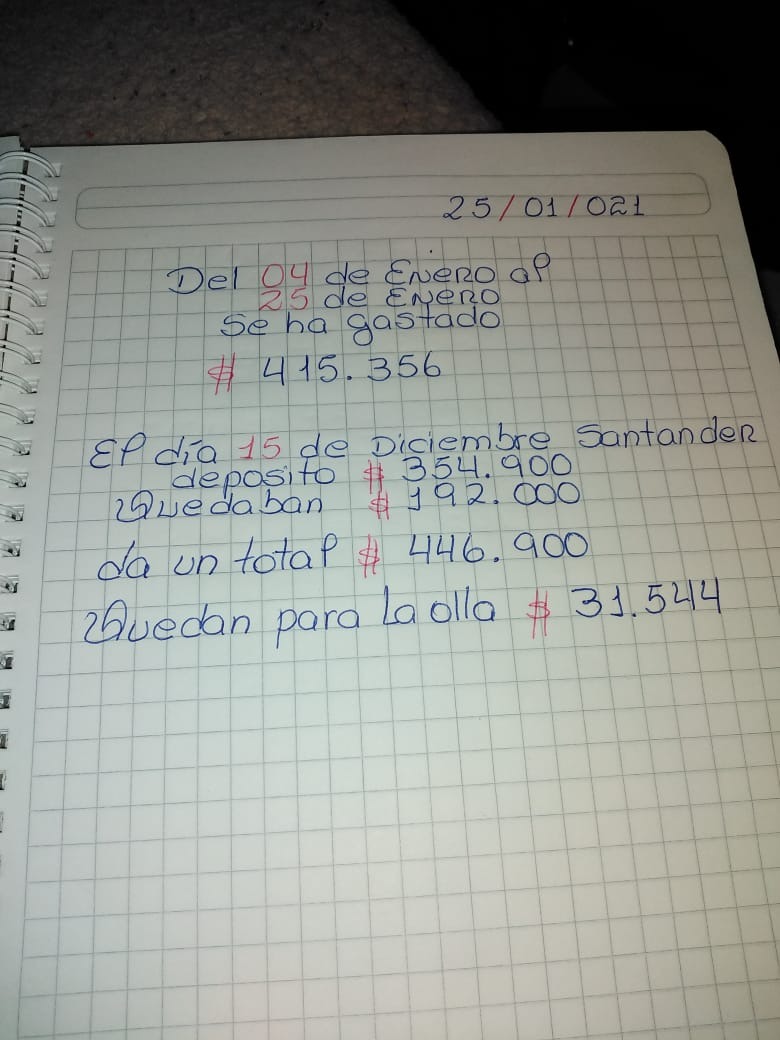 25/01/021
Del 04 de Enero al
25 de Enero
Se ha gastado
$ 415.356
El día 15 de Diciembre Santander
deposito $ 354.900
Quedaban $ 192.000
da un total $ 446.900
Quedan para La olla $ 31.544